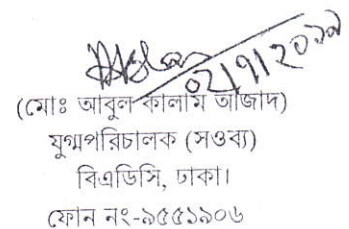 ০২/৭/২০১৯
(মোঃ আবুল কালাম আজাদ)
যুগ্মপরিচালক (সওব্য)
বিএডিসি, ঢাকা।
ফোন নং-৯৫৫১৯০৬